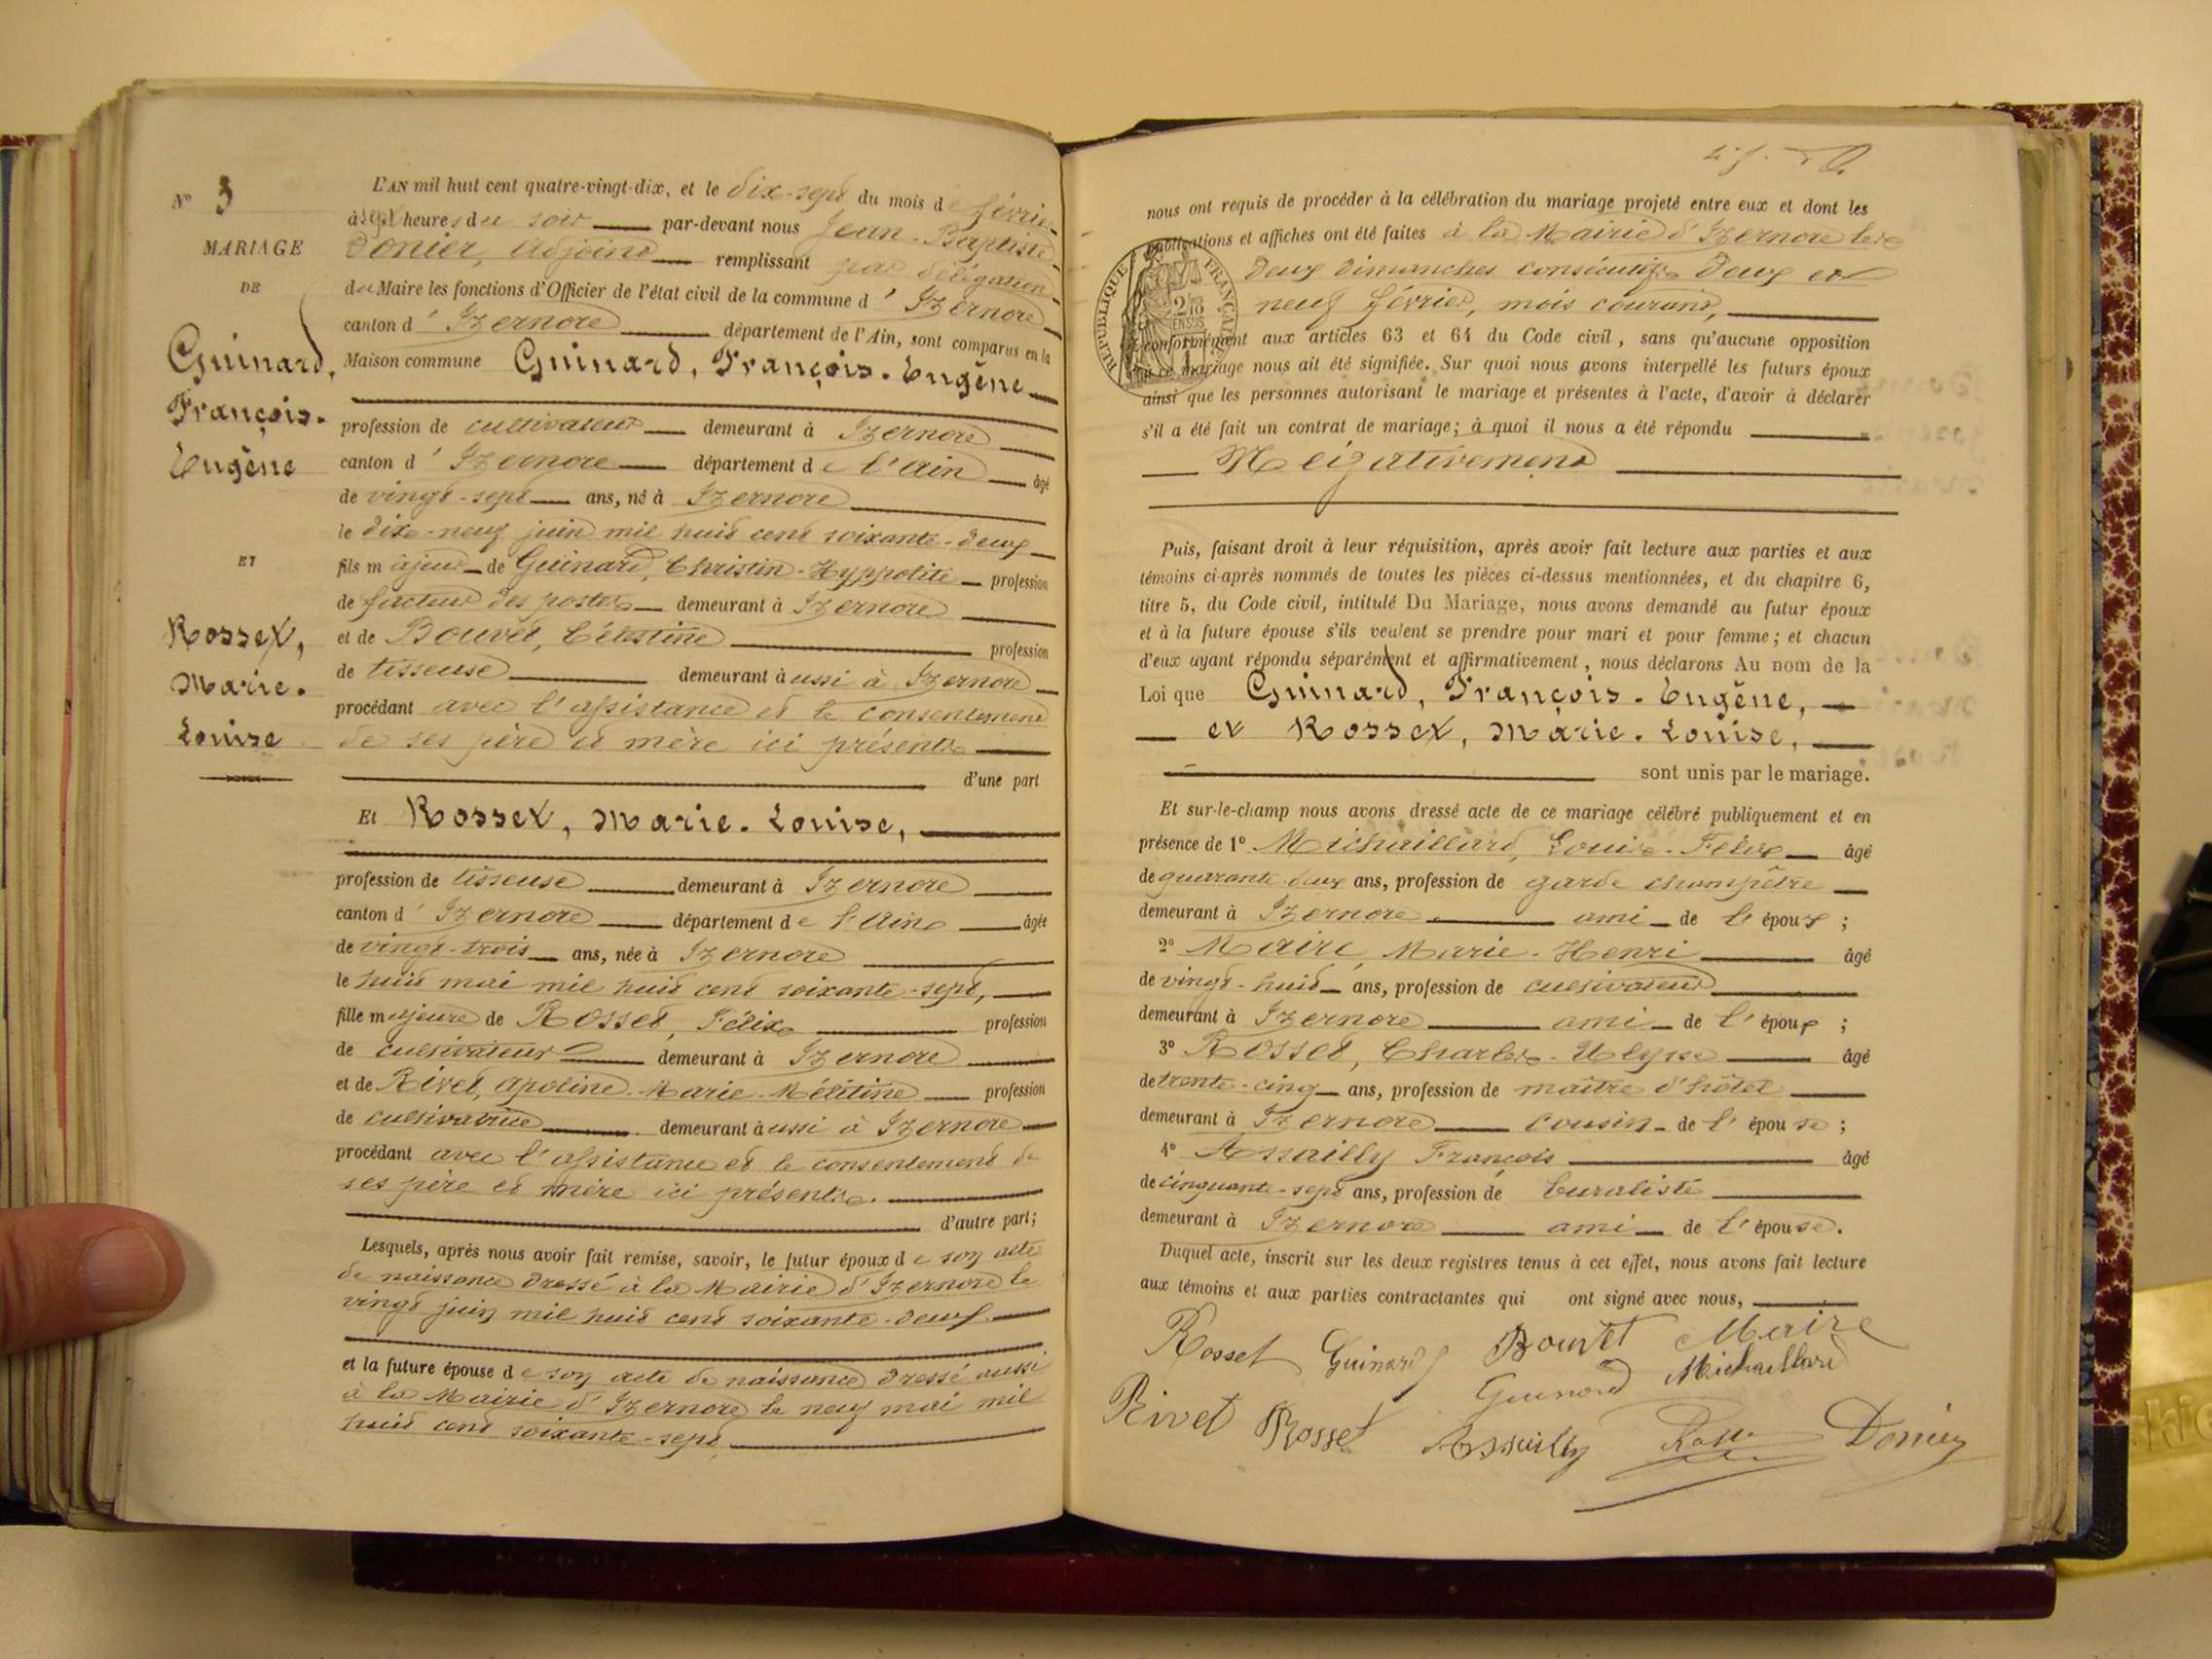 N° 3
MARIAGE
DE
Guinard,
François-
Eugène
ET
Rosset,
Marie-
Louise
L'AN mil huit cent quatre-vingt-dix, et le dix-sept du mois de février
à sept heures du soir par-devant nous Jean-Baptiste
Donier, adjoint remplissant par délégation
du Maire les fonctions d'Officier de l'état civil de la commune d'Izernore
canton d'Izernore département de l'Ain, sont comparus en la
Maison commune Guinard, François-Eugène
profession de cultivateur demeurant à Izernore
canton d'Izernore département de l'Ain âgé
de vingt-sept ans, né à Izernore
le dix-neuf juin mil huit cent soixante-deux
fils majeur de Guinard, Christin-Hyppolite profession
de facteur des postes demeurant à Izernore
et de Bouvet, Célestine profession
de tisseuse demeurant aussi à Izernore
procédant avec l'assistance et le consentement
de ses père et mère ici présents
d'une part
Et Rosset, Marie-Louise,
profession de tisseuse demeurant à Izernore
canton d'Izernore département de l'Ain âgée
de vingt-trois ans, née à Izernore
le huit mai mil huit cent soixante-sept,
fille majeure de Rosset, Félix profession
de cultivateur demeurant à Izernore
et de Rivet, Apoline-Marie-Mélitine profession
de cultivatrice demeurant aussi à Izernore
procédant avec l'assistance et le consentement de
ses père et mère ici présents.
d'autre part;
Lesquels, après nous avoir fait remise, savoir, le futur époux de son acte
de naissance dressé à la Mairie d'Izernore le
vingt juin mil huit cent soixante-deux.
et la future épouse de son acte de naissance dressé aussi
à la Mairie d'Izernore le neuf mai mil
huit cent soixante-sept,
nous ont requis de procéder à la célébration du mariage projeté entre eux et dont les
publications et affiches ont été faites à la Mairie d'Izernore les
deux dimanches consécutifs deux et
neuf février, mois courant,
conformément aux articles 63 et 64 du Code civil, sans qu'aucune opposition
au dit mariage nous ait été signifiée. Sur quoi nous avons interpellé les futurs époux
ainsi que les personnes autorisant le mariage et présentes à l'acte, d'avoir à déclarer
s'il a été fait un contrat de mariage; à quoi il nous a été répondu
Négativement
RÉPUBLIQUE FRANÇAISE
2/10
EN SUS
Puis, faisant droit à leur réquisition, après avoir fait lecture aux parties et aux
témoins ci-après nommés de toutes les pièces ci-dessus mentionnées, et du chapitre 6,
titre 5, du Code civil, intitulé Du Mariage, nous avons demandé au futur époux
et à la future épouse s'ils veulent se prendre pour mari et pour femme; et chacun
d'eux ayant répondu séparément et affirmativement, nous déclarons Au nom de la
Loi que Guinard, François-Eugène,
et Rosset, Marie-Louise,
sont unis par le mariage.
Et sur-le-champ nous avons dressé acte de ce mariage célébré publiquement et en
présence de 1° Michaillard, Louis-Félix âgé
de quarante-deux ans, profession de garde champêtre
demeurant à Izernore ami de l'époux;
2° Maire, Marie-Henri âgé
de vingt-huit ans, profession de cultivateur
demeurant à Izernore ami de l'époux;
3° Rosset, Charles-Ulysse âgé
de trente-cinq ans, profession de maître d'hôtel
demeurant à Izernore cousin de l'épouse;
4° Assailly François âgé
de cinquante-sept ans, profession de buraliste
demeurant à Izernore ami de l'épouse.
Duquel acte, inscrit sur les deux registres tenus à cet effet, nous avons fait lecture
aux témoins et aux parties contractantes qui ont signé avec nous,
Rosset Guinard Bouvet Maire
Guinard Michaillard
Rivet Rosset Assailly Donier